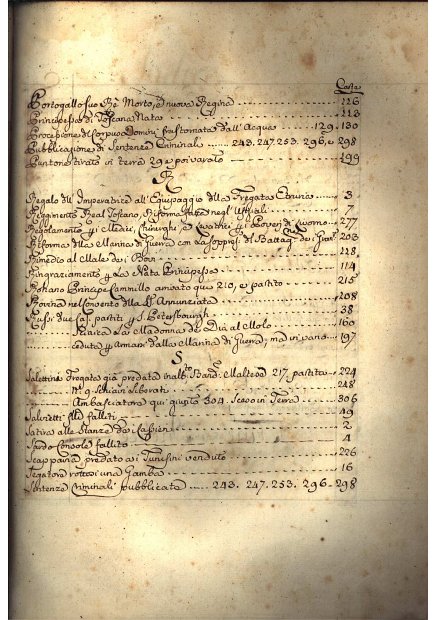 Carta
Portogallo suo Rè Morto, e nuova Regina 126
Principessa di Toscana Nata 113
Processione di Corpus Domini frastornata dall'Acqua 129. 130
Pubblicazione di Sentenze Criminali 243. 247. 253. 296. e 298
Puntone tirato in terra 29 e poi varato 199
R
Regalo dell'Imperatrice all'Equipaggio della Fregata Etruria 3
Reggimento Real Toscano, Riforma negl'Uffiziali 7
Regolamento p i Medici, Chirurghi, e p i Poveri di Livorno 277
Riforma della Marina di Guerra con la soppres: del Battag: de i 203
Rimedio al Male de i Bovi 118
Ringraziamento p La Nata Principessa 114
Rohano Principe Cammillo arrivato qua 210, e partito 215
Rovina nel Convento della SS. Annunziata 208
Russi due partiti p S. Petersburgh 38
Visita la Madonna di Quà al Molo 160
ceduta p armarsi dalla Marina di Guerra, ma in vano 197
S
Salettina Fregata già predata in alto Band: Maltese 217. partita 224
N.º 9 Schiavi liberati 248
Ambasciatore qui giunto 304. sceso in Terra 306
Salvietti falliti 49
Satira alle Stanze de Cassieri 2
Sardo Console fallito 4
Scappavia predato a i Tunisini venduto 226
Segatore rottosi una Gamba 16
Sentenze Criminali pubblicate 243. 247. 253. 296. 298